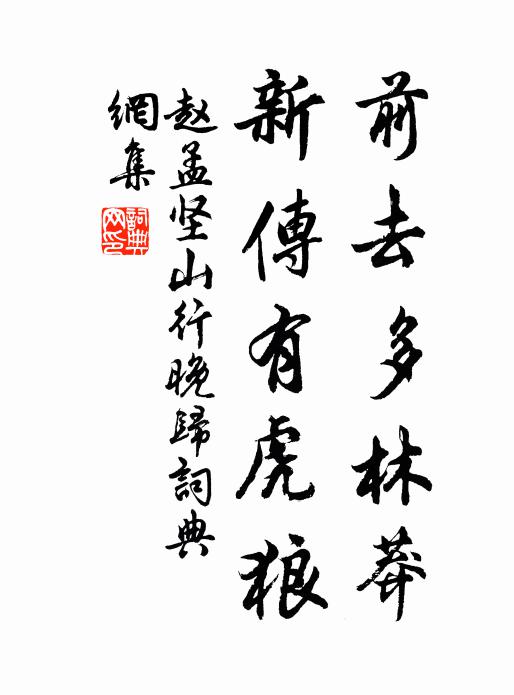 前去多林莽
新傳有虎狼
赵孟坚山行晚歸詞典
網集
詞典
网印